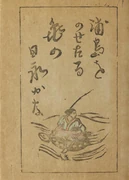 浦島を
のせたる
亀の
日永かな